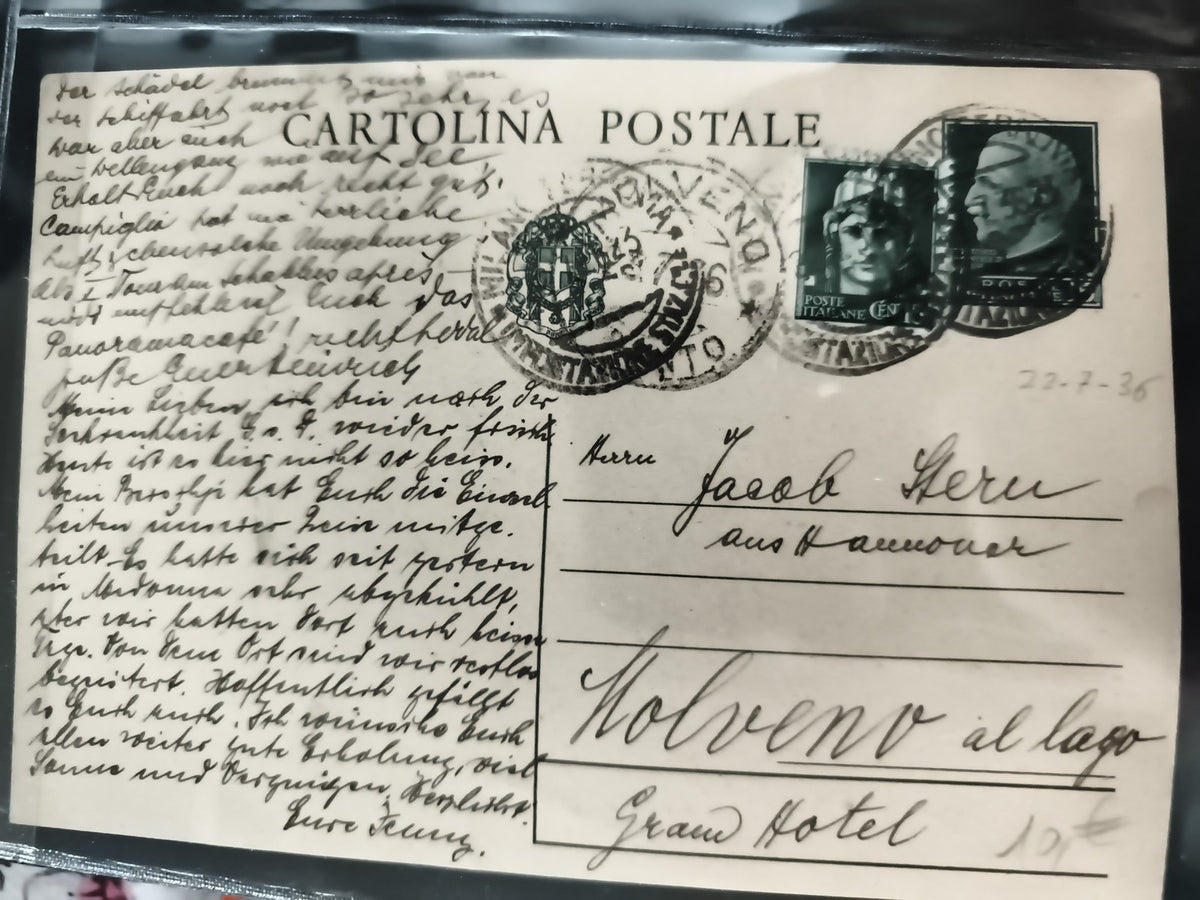 CARTOLINA POSTALE
Der Schädel brummt mir von
der Schiffahrt noch so sehr, es
war aber auch
ein Wellengang wie auf See,
Erhalt Euch noch recht gut,
Campiglio hat ne herrliche
Luft, ebensolche Umgebung
Als I
empfehle Euch das
Panoramacafé!
Grüße Euer Heinrich
Meine Lieben, ich bin nach der
G. s. D. wieder frisch.
Heute ist es hier nicht so heiss.
Mein hat Euch die Einzel
heiten unserer Reise mitge.
teilt. Es hatte sich seit gestern
in Madonna sehr abgekühlt,
aber wir hatten dort auch heisse
Tage. Von dem Ort sind wir restlos
begeistert. Hoffentlich gefällt
es Euch auch. Ich wünsche Euch
allen weiter gute Erholung, viel
Sonne und Vergnügen. Herzlichst.
Eure Jenny.
MOLVENO
TRENTO
POSTE
ITALIANE CEN
22-7-36
Herrn Jacob Stern
aus Hannover
Molveno al lago
Grand Hotel
10,- €